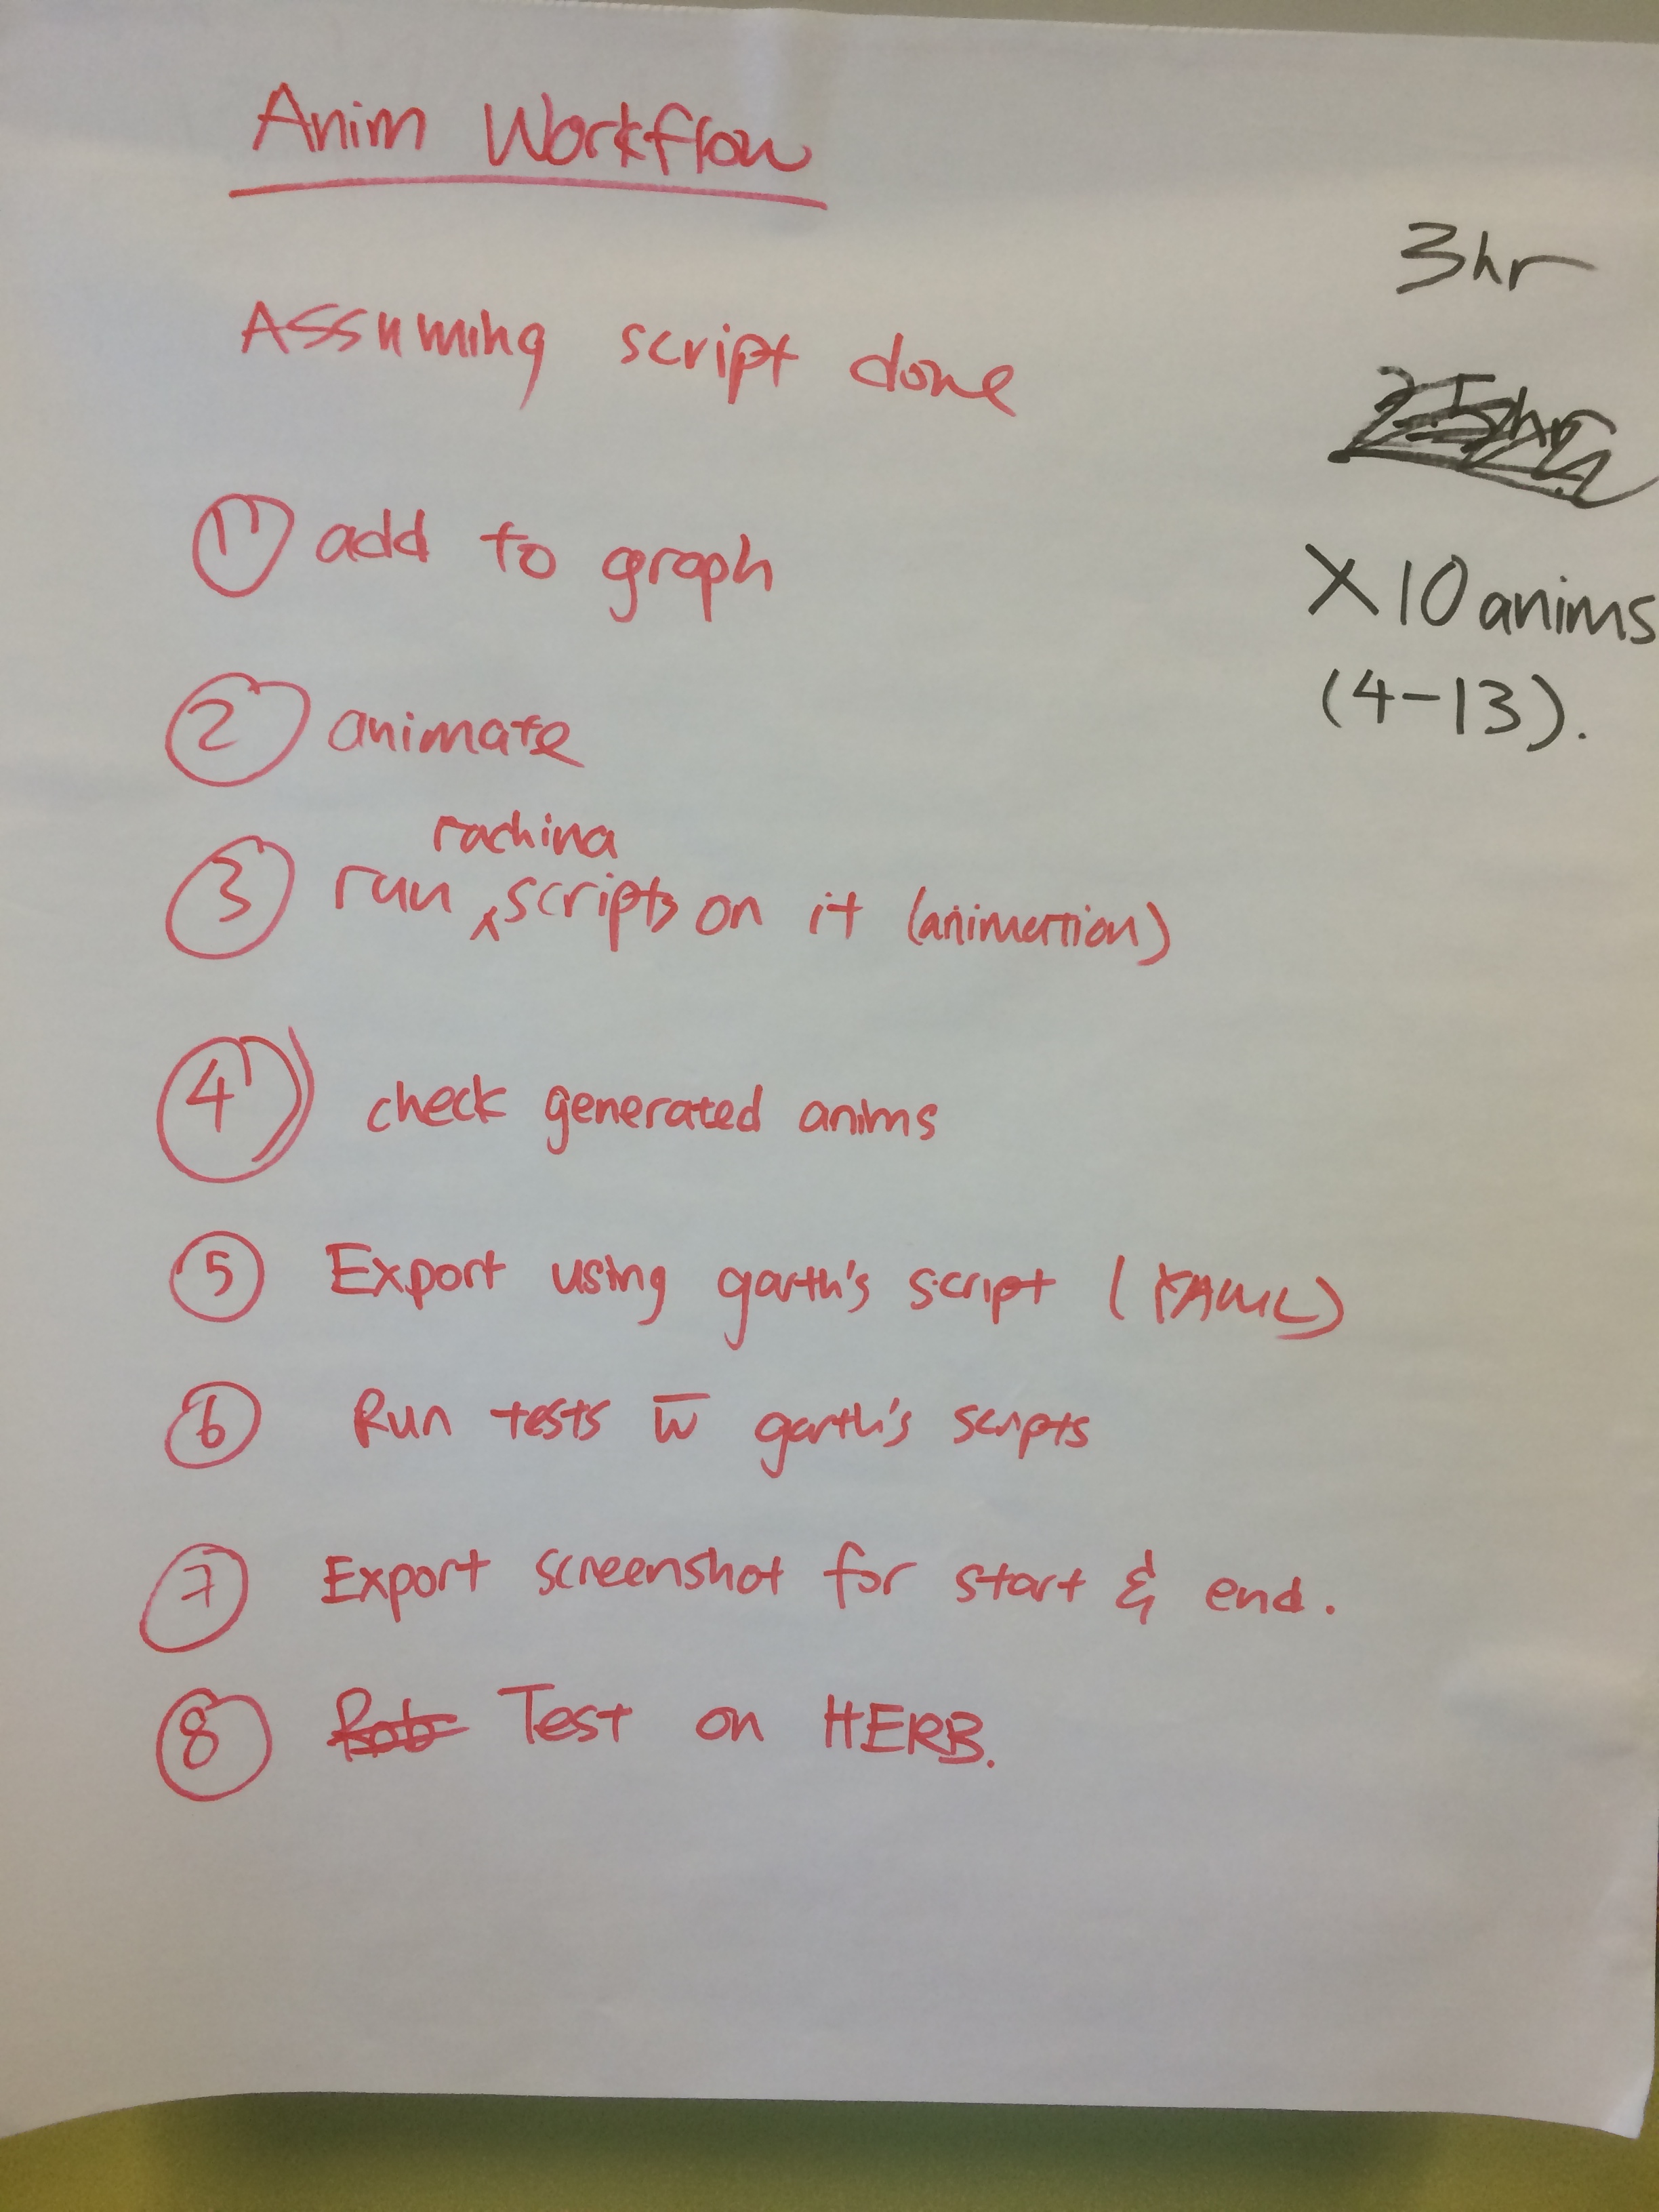 Anim Workflow
3hr
Assuming script done
2.5hr
① add to graph
X10 anims
(4-13).
② animate
rachina
③ run ^ scripts on it (animation)
④ check generated anims
⑤ Export using garth's script (YAML)
⑥ Run tests w̅ garth's scripts
⑦ Export screenshot for start & end.
⑧ Rob Test on HERB.